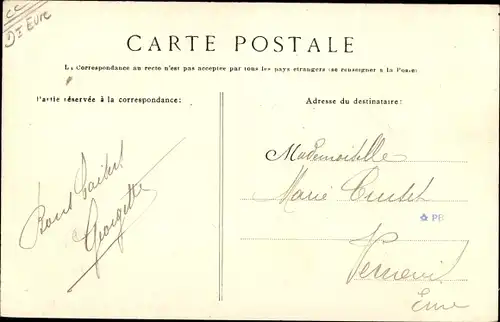 CC
Dt Eure
CARTE POSTALE
La Correspondance au recto n'est pas acceptée par tous les pays étrangers (se renseigner à la Poste)
Partie réservée à la correspondance:
Adresse du destinataire:
Georgette
Mademoiselle
Marie
PB
Verneuil
Eure